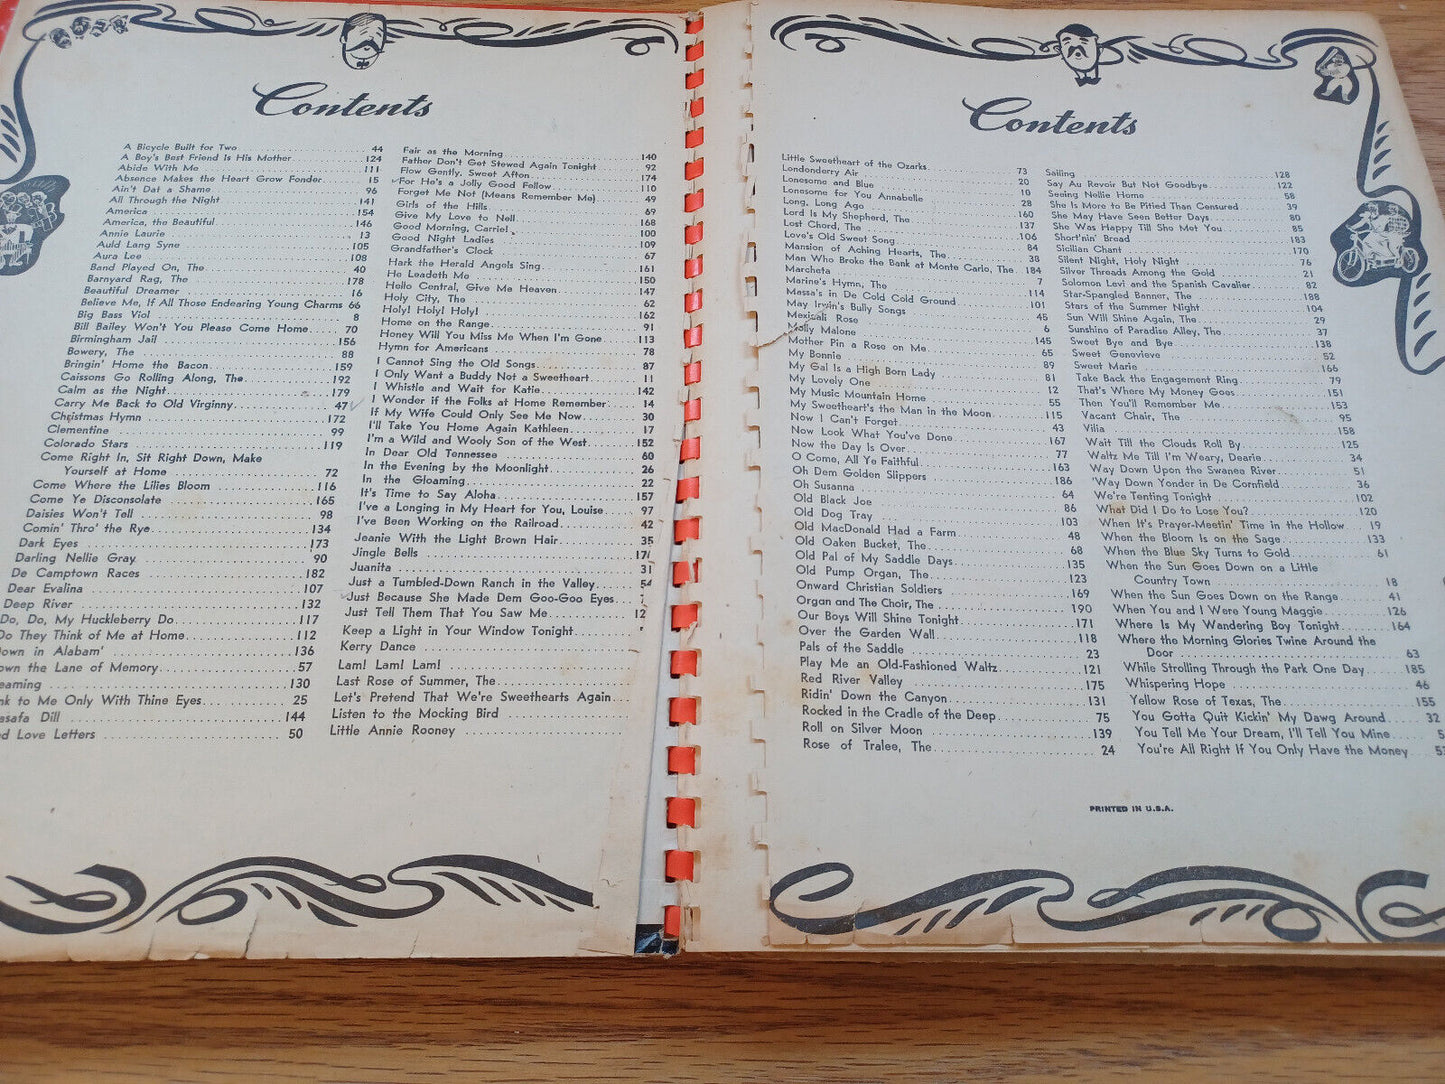 Contents
A Bicycle Built for Two 44
A Boy's Best Friend Is His Mother 124
Abide With Me 111
Absence Makes the Heart Grow Fonder 15
Ain't Dat a Shame 96
All Through the Night 141
America 154
America, the Beautiful 146
Annie Laurie 13
Auld Lang Syne 105
Aura Lee 108
Band Played On, The 40
Barnyard Rag, The 178
Beautiful Dreamer 16
Believe Me, If All Those Endearing Young Charms 66
Big Bass Viol 8
Bill Bailey Won't You Please Come Home 70
Birmingham Jail 156
Bowery, The 88
Bringin' Home the Bacon 159
Caissons Go Rolling Along, The 192
Calm as the Night 179
Carry Me Back to Old Virginny 47
Christmas Hymn 172
Clementine 99
Colorado Stars 119
Come Right In, Sit Right Down, Make
Yourself at Home 72
Come Where the Lilies Bloom 116
Come Ye Disconsolate 165
Daisies Won't Tell 98
Comin' Thro' the Rye 134
Dark Eyes 173
Darling Nellie Gray 90
De Camptown Races 182
Dear Evalina 107
Deep River 132
Do, Do, My Huckleberry Do 117
Do They Think of Me at Home 112
own in Alabam' 136
own the Lane of Memory 57
eaming 130
nk to Me Only With Thine Eyes 25
asafa Dill 144
d Love Letters 50
Fair as the Morning 140
Father Don't Get Stewed Again Tonight 92
Flow Gently, Sweet Afton 174
For He's a Jolly Good Fellow 110
Forget Me Not (Means Remember Me) 49
Girls of the Hills 69
Give My Love to Nell 168
Good Morning, Carrie! 100
Good Night Ladies 109
Grandfather's Clock 67
Hark the Herald Angels Sing 161
He Leadeth Me 150
Hello Central, Give Me Heaven 147
Holy City, The 62
Holy! Holy! Holy! 162
Home on the Range 91
Honey Will You Miss Me When I'm Gone 113
Hymn for Americans 78
I Cannot Sing the Old Songs 87
I Only Want a Buddy Not a Sweetheart 11
I Whistle and Wait for Katie 142
I Wonder if the Folks at Home Remember 14
If My Wife Could Only See Me Now 30
I'll Take You Home Again Kathleen 17
I'm a Wild and Wooly Son of the West 152
In Dear Old Tennessee 60
In the Evening by the Moonlight 26
In the Gloaming 22
It's Time to Say Aloha 157
I've a Longing in My Heart for You, Louise 97
I've Been Working on the Railroad 42
Jeanie With the Light Brown Hair 35
Jingle Bells 17
Juanita 31
Just a Tumbled-Down Ranch in the Valley 54
Just Because She Made Dem Goo-Goo Eyes
Just Tell Them That You Saw Me 12
Keep a Light in Your Window Tonight
Kerry Dance
Lam! Lam! Lam!
Last Rose of Summer, The
Let's Pretend That We're Sweethearts Again
Listen to the Mocking Bird
Little Annie Rooney
Contents
Little Sweetheart of the Ozarks 73
Londonderry Air 20
Lonesome and Blue 10
Lonesome for You Annabelle 28
Long, Long Ago 160
Lord Is My Shepherd, The 137
Lost Chord, The 106
Love's Old Sweet Song 84
Mansion of Aching Hearts, The 38
Man Who Broke the Bank at Monte Carlo, The 184
Marcheta 7
Marine's Hymn, The 114
Massa's in De Cold Cold Ground 101
May Irvin's Bully Songs 45
Mexicali Rose 6
Molly Malone 145
Mother Pin a Rose on Me 65
My Bonnie 89
My Gal Is a High Born Lady 81
My Lovely One 12
My Music Mountain Home 55
My Sweetheart's the Man in the Moon 115
Now I Can't Forget 43
Now Look What You've Done 167
Now the Day Is Over 77
O Come, All Ye Faithful 163
Oh Dem Golden Slippers 186
Oh Susanna 64
Old Black Joe 86
Old Dog Tray 103
Old MacDonald Had a Farm 48
Old Oaken Bucket, The 68
Old Pal of My Saddle Days 135
Old Pump Organ, The 123
Onward Christian Soldiers 169
Organ and The Choir, The 190
Our Boys Will Shine Tonight 171
Over the Garden Wall 118
Pals of the Saddle 23
Play Me an Old-Fashioned Waltz 121
Red River Valley 175
Ridin' Down the Canyon 131
Rocked in the Cradle of the Deep 75
Roll on Silver Moon 139
Rose of Tralee, The 24
Sailing 128
Say Au Revoir But Not Goodbye 122
Seeing Nellie Home 58
She Is More to Be Pitied Than Censured 39
She May Have Seen Better Days 80
She Was Happy Till She Met You 85
Short'nin' Bread 183
Sicilian Chant 170
Silent Night, Holy Night 76
Silver Threads Among the Gold 21
Solomon Levi and the Spanish Cavalier 82
Star-Spangled Banner, The 188
Stars of the Summer Night 104
Sun Will Shine Again, The 29
Sunshine of Paradise Alley, The 37
Sweet Bye and Bye 138
Sweet Genevieve 52
Sweet Marie 166
Take Back the Engagement Ring 79
That's Where My Money Goes 151
Then You'll Remember Me 153
Vacant Chair, The 95
Vilia 158
Wait Till the Clouds Roll By 125
Waltz Me Till I'm Weary, Dearie 34
Way Down Upon the Swanea River 51
'Way Down Yonder in De Cornfield 36
We're Tenting Tonight 102
What Did I Do to Lose You? 120
When It's Prayer-Meetin' Time in the Hollow 19
When the Bloom Is on the Sage 133
When the Blue Sky Turns to Gold 61
When the Sun Goes Down on a Little
Country Town 18
When the Sun Goes Down on the Range 41
When You and I Were Young Maggie 126
Where Is My Wandering Boy Tonight 164
Where the Morning Glories Twine Around the
Door 63
While Strolling Through the Park One Day 185
Whispering Hope 46
Yellow Rose of Texas, The 155
You Gotta Quit Kickin' My Dawg Around 32
You Tell Me Your Dream, I'll Tell You Mine 5
You're All Right If You Only Have the Money 5
PRINTED IN U.S.A.